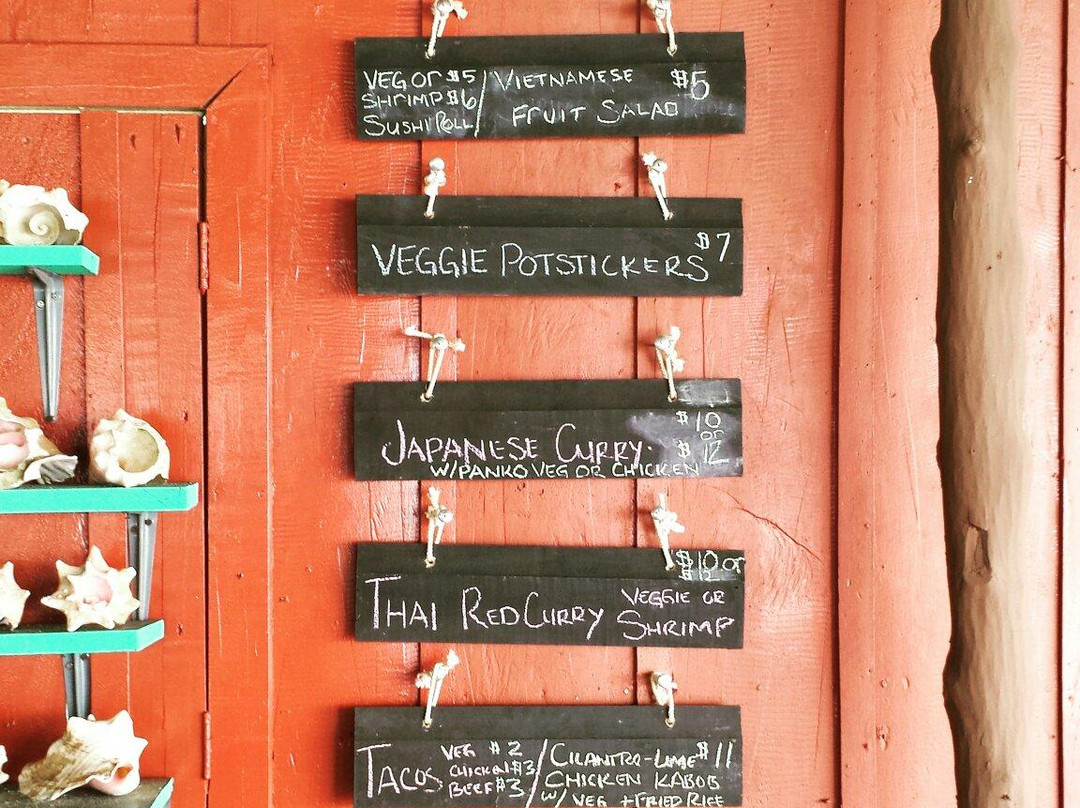 VEG OR $5 / VIETNAMESE $5
SHRIMP $6 FRUIT SALAD
SUSHI ROLL
$7
VEGGIE POTSTICKERS
$10
or
JAPANESE CURRY. $12
W/PANKO VEG OR CHICKEN
$10 or
$12
THAI RED CURRY VEGGIE OR
SHRIMP
TACOS VEG $2 / CILANTRO-LIME $11
CHICKEN $3 CHICKEN KABOB
BEEF $3 W/ VEG + FRIED RICE